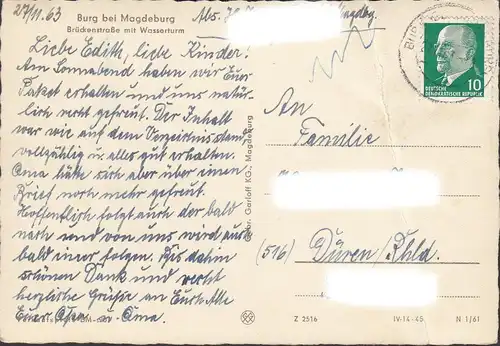 27/11.63
Burg bei Magdeburg
Brückenstraße mit Wasserturm
Abs.
Liebe Edith, liebe Kinder!
Am Sonnabend haben wir Euer
Paket erhalten und uns natür-
lich recht gefreut. Der Inhalt
war wie auf dem Verzeichnis stand
vollzählig u. alles gut erhalten.
Oma hätte sich aber über einen
Brief noch mehr gefreut.
Hoffentlich folgt auch der bald
nach und von uns wird auch
bald einer folgen. Bis dahin
schönen Dank und recht
herzliche Grüße an Euch Alle
Euer Opa u. Oma.
Gebr. Garloff KG., Magdeburg
DEUTSCHE
DEMOKRATISCHE REPUBLIK
10
An
Familie
(516) Düren/Rhld.
Z 2516
IV-14-45
N 1/61